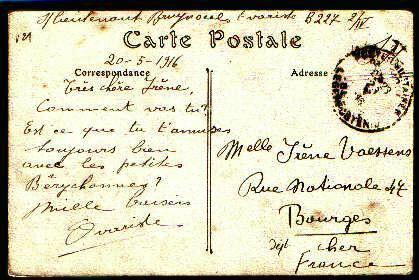 Lieutenant Bruynoeel Evariste B227 2/IV
Carte Postale
20-5-1916
Correspondance
Adresse
Très chère Irène,
Comment vas tu?
Est ce que tu t'amuses
toujours bien
avec les petites
Mille baisers
Ovariste
Melle Irène Vaessens
Rue Nationale 47
Bourges
dépt Cher
France